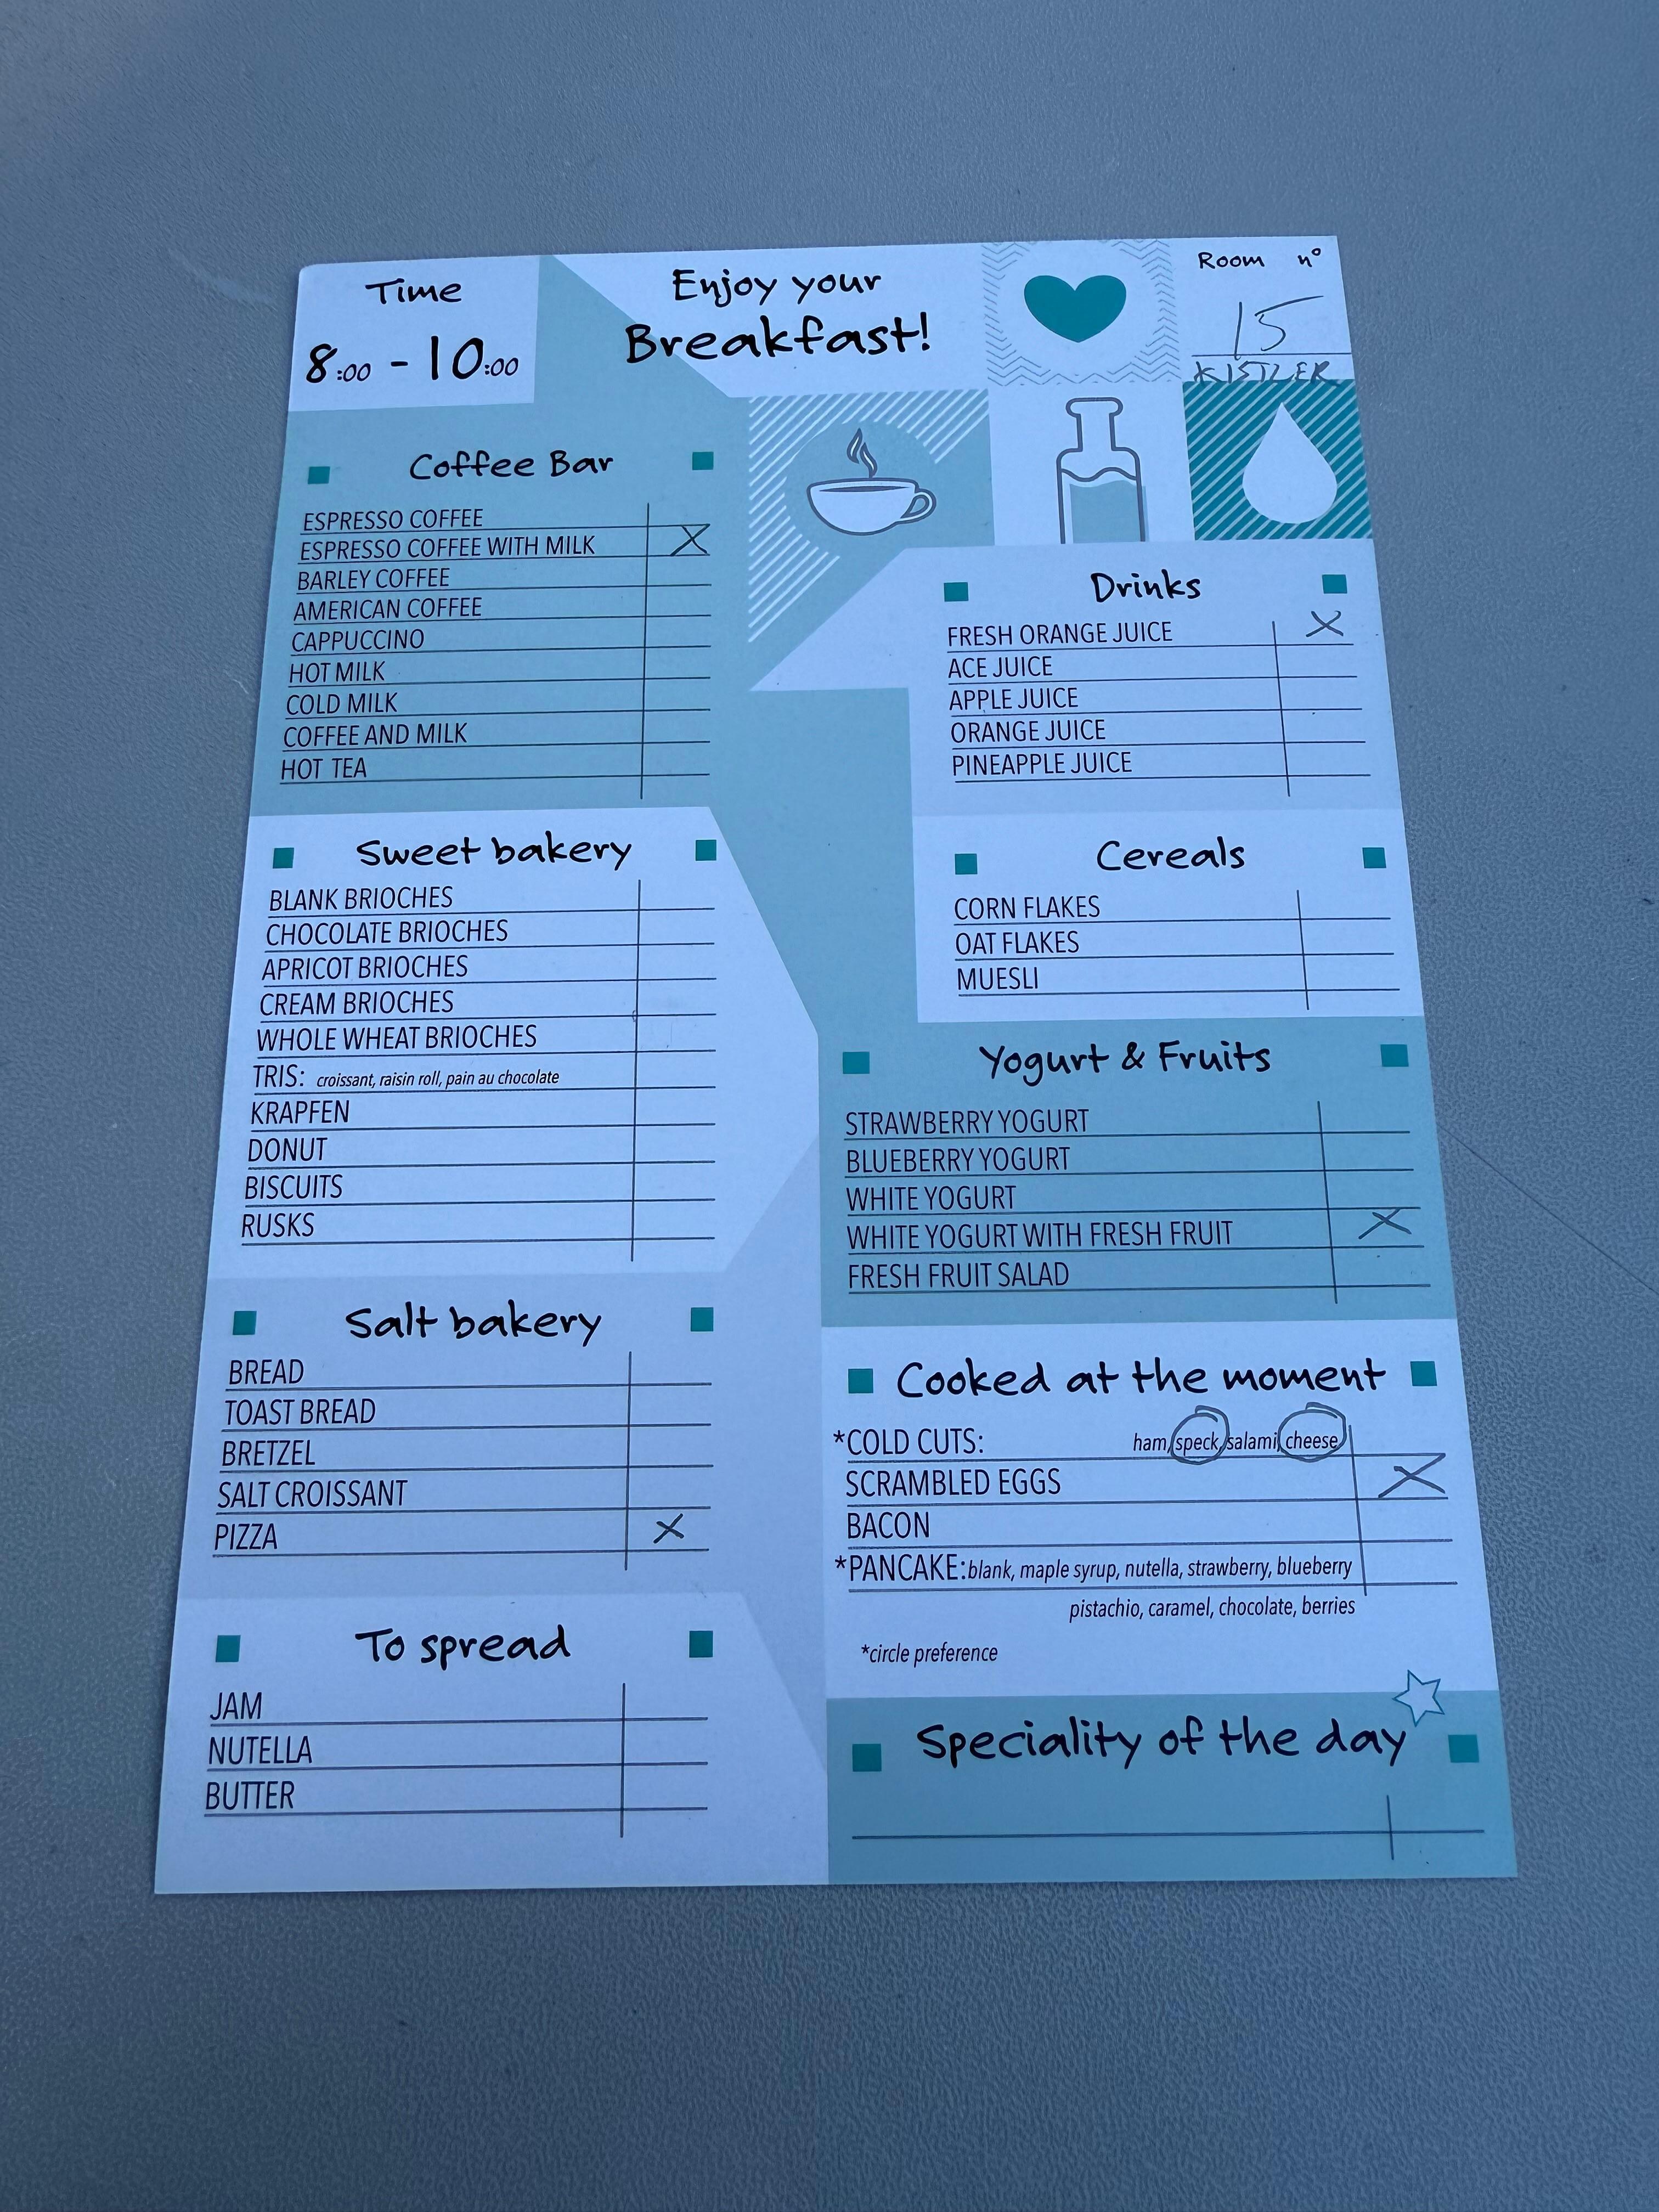 Time
8:00 - 10:00
Enjoy your
Breakfast!
Room n°
15
KISTLER
Coffee Bar
ESPRESSO COFFEE
ESPRESSO COFFEE WITH MILK X
BARLEY COFFEE
AMERICAN COFFEE
CAPPUCCINO
HOT MILK
COLD MILK
COFFEE AND MILK
HOT TEA
Sweet bakery
BLANK BRIOCHES
CHOCOLATE BRIOCHES
APRICOT BRIOCHES
CREAM BRIOCHES
WHOLE WHEAT BRIOCHES
TRIS: croissant, raisin roll, pain au chocolate
KRAPFEN
DONUT
BISCUITS
RUSKS
Salt bakery
BREAD
TOAST BREAD
BRETZEL
SALT CROISSANT
PIZZA X
To spread
JAM
NUTELLA
BUTTER
Drinks
FRESH ORANGE JUICE X
ACE JUICE
APPLE JUICE
ORANGE JUICE
PINEAPPLE JUICE
Cereals
CORN FLAKES
OAT FLAKES
MUESLI
Yogurt & Fruits
STRAWBERRY YOGURT
BLUEBERRY YOGURT
WHITE YOGURT
WHITE YOGURT WITH FRESH FRUIT X
FRESH FRUIT SALAD
Cooked at the moment
*COLD CUTS: ham, speck, salami, cheese
SCRAMBLED EGGS X
BACON
*PANCAKE: blank, maple syrup, nutella, strawberry, blueberry
pistachio, caramel, chocolate, berries
*circle preference
Speciality of the day